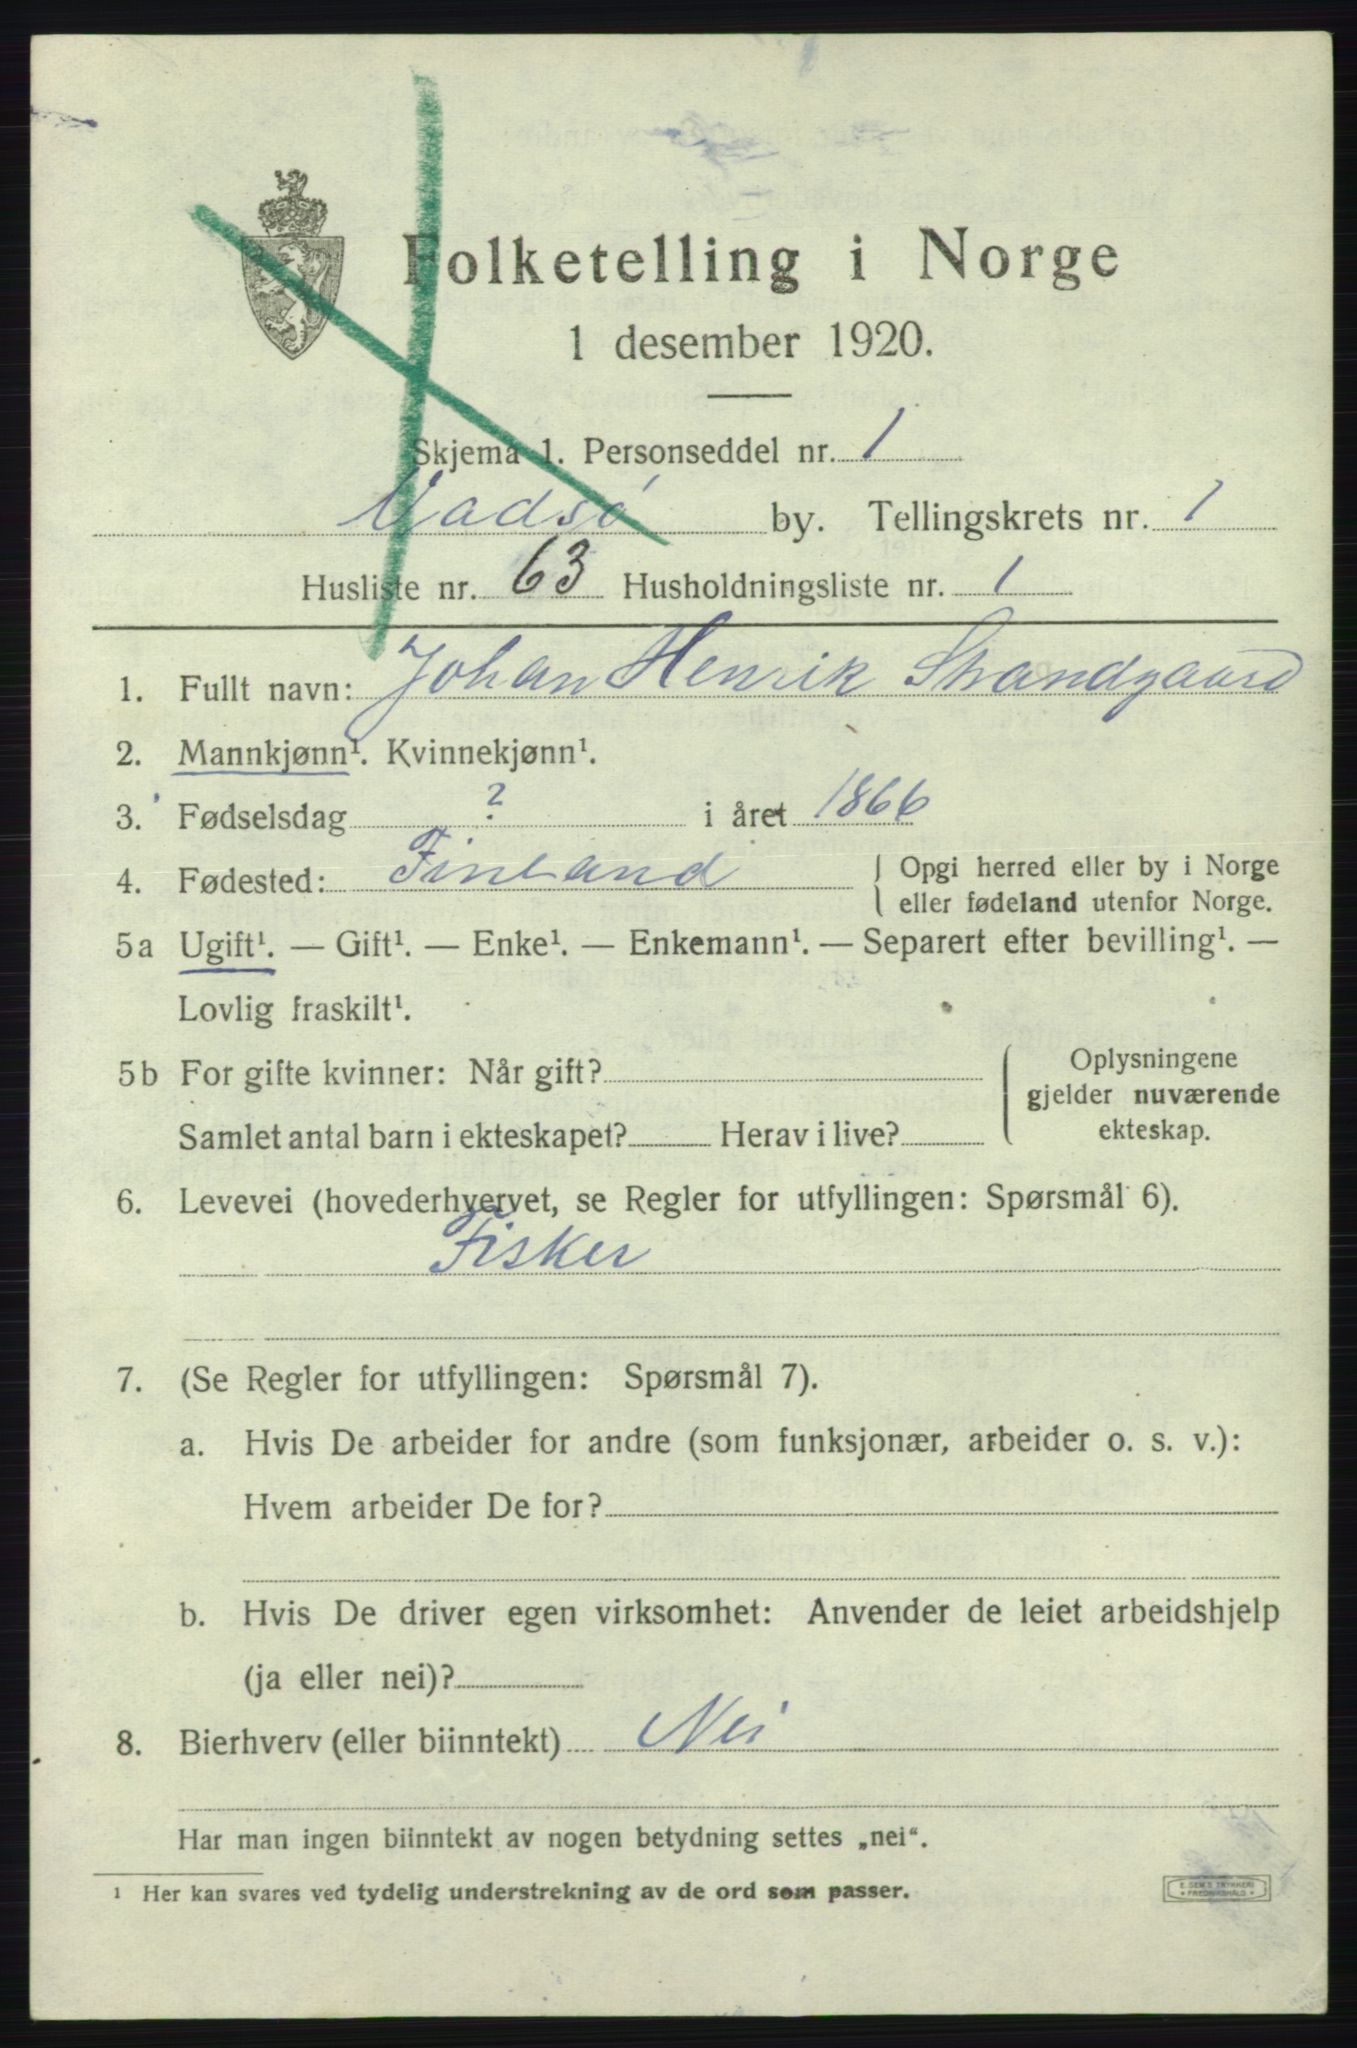 Folketelling i Norge
1 desember 1920.
Skjema 1. Personseddel nr. 1
Vadsø by. Tellingskrets nr. 1
Husliste nr. 63 Husholdningsliste nr. 1
1. Fullt navn: Johan Henrik Strandgaard
2. Mannkjønn¹. Kvinnekjønn¹.
3. Fødselsdag ? i året 1866
4. Fødested: Finland { Opgi herred eller by i Norge
eller fødeland utenfor Norge.
5a Ugift¹. — Gift¹. — Enke¹. — Enkemann¹. — Separert efter bevilling¹. —
Lovlig fraskilt¹.
5b For gifte kvinner: Når gift? Oplysningene
gjelder nuværende
Samlet antal barn i ekteskapet? Herav i live? ekteskap.
6. Levevei (hovederhvervet, se Regler for utfyllingen: Spørsmål 6).
Fisker
7. (Se Regler for utfyllingen: Spørsmål 7).
a. Hvis De arbeider for andre (som funksjonær, arbeider o. s. v.):
Hvem arbeider De for?
b. Hvis De driver egen virksomhet: Anvender de leiet arbeidshjelp
(ja eller nei)?
8. Bierhverv (eller biinntekt) Nei
Har man ingen biinntekt av nogen betydning settes „nei“.
¹ Her kan svares ved tydelig understrekning av de ord som passer.
E. SEM'S TRYKKERI
FREDRIKSHALD